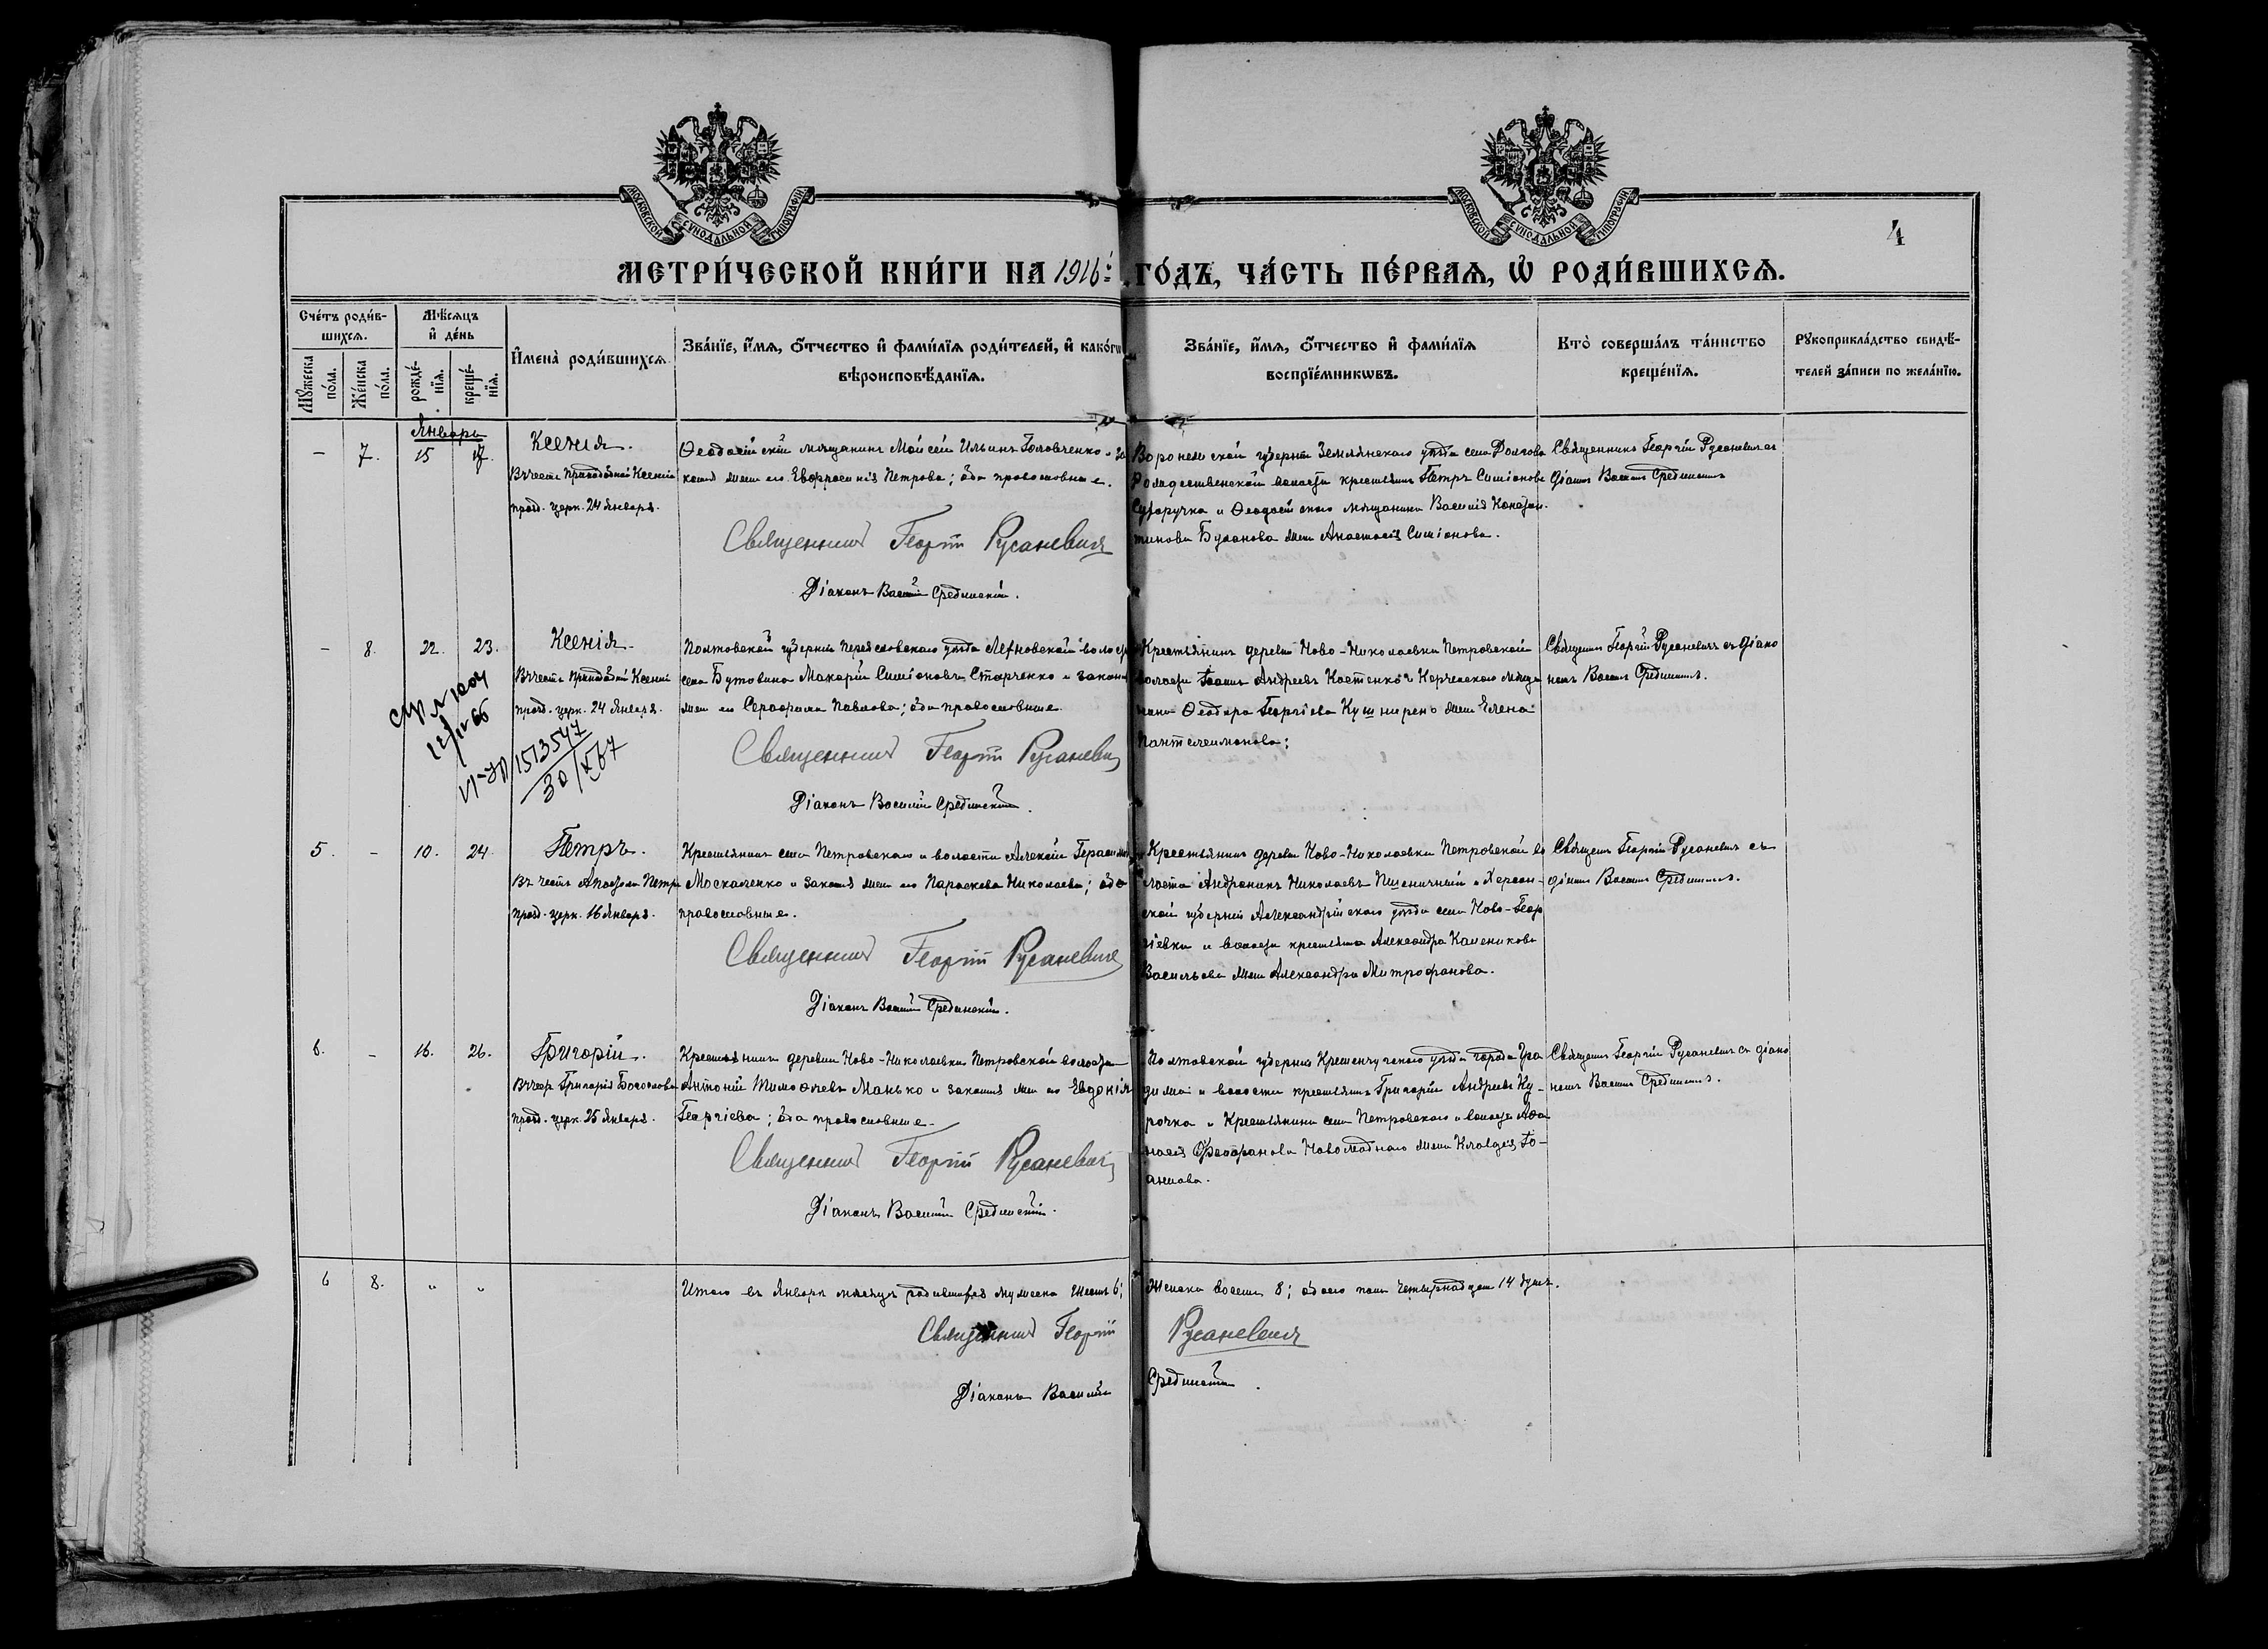 МОСКОВСКОЙ СѴНОДАЛЬНОЙ ТИПОГРАФІИ
МОСКОВСКОЙ СѴНОДАЛЬНОЙ ТИПОГРАФІИ
4
МЕТРИ́ЧЕСКОЙ КНИ́ГИ НА 1916й ГО́ДЪ, ЧА́СТЬ ПЕ́РВАѦ, Ѡ҆ РОДИ́ВШИХСѦ.
Сче́тъ роди́вшихсѧ.
Мꙋ́жеска по́ла.
Же́нска по́ла.
Мѣ́сѧцъ и҆ де́нь
рожде́нїѧ.
креще́нїѧ.
И҆мена̀ роди́вшихсѧ
Зва́нїе, и҆́мѧ, ѻ҆́тчество и҆ фами́лїѧ роди́телей, и҆ како́гѡ
вѣроисповѣ́данїѧ.
Зва́нїе, и҆́мѧ, ѻ҆́тчество и҆ фами́лїѧ
воспрїе́мникѡвъ.
Кто̀ соверша́лъ та́инство
креще́нїѧ.
Рꙋкоприкла́дство свидѣ́-
телей за́писи по жела́нїю.
Январь
– 7. 15 17.
Ксенія.
Въ честь Преподобной Ксеніи
празд. церк. 24 Января.
Ѳеодосійскій мѣщанинъ Мойсей Ильинъ Головченко и за
конная жена его Евфросинія Петрова; оба православные.
Священникъ Георгій Русаневичъ
Діаконъ Василій Срединскій.
Воронежской губерніи Землянскаго уѣзда села Долгова
Рождественской волости крестьянинъ Петръ Симіоновъ
и Ѳеодосійскаго мѣщанина Василія Констан-
тинова Буланова жена Анастасія Симіонова.
Священникъ Георгій Русаневичъ съ
діакон. Василіемъ Срединскимъ
– 8. 22. 23.
Ксенія
Въ честь Преподобной Ксеніи
празд. церк. 24 Января.
1513547
30/X 67
Полтавской губерніи Переяславскаго уѣзда волости
села Макарій Симіоновъ Старченко и законная
жена его Серафима Павлова; оба православные
Священникъ Георгій Русаневичъ
Діаконъ Василій Срединскій.
Крестьянинъ деревни Ново-Николаевки Петровской
волости Іоаннъ Андреевъ Костенко и Керченскаго мѣща
нина Ѳеодора Георгіева Кушнирено жена Елена
Пантелеимонова;
Священ. Георгій Русаневичъ съ діако
номъ Василіемъ Срединскимъ.
5. – 10. 24.
Петръ.
Въ честь Апостола Петра
празд. церк. 16 Января.
Крестьянинъ села Петровскаго и волости Алексій Герасимовъ
Москаленко и законная жена его Параскева Николаева; оба
православные.
Священникъ Георгій Русаневичъ
Діаконъ Василій Срединскій.
Крестьянинъ деревни Ново-Николаевки Петровской во
лости Андроникъ Николаевъ Пшеничный и Херсон-
ской губерніи Александрійскаго уѣзда села Ново-Геор
гіевки и волости крестьянина Александра Каленикова
Васильева жена Александра Митрофанова.
Священ. Георгій Русаневичъ съ
діакон. Василіемъ Срединскимъ.
6. – 16. 26.
Григорій.
Въ честь Григорія Богослова
празд. церк. 25 Января.
Крестьянинъ деревни Ново-Николаевки Петровской волости
Антоній Тимоѳеевъ Манько и законная жена его Евдокія
Георгіева; оба православные.
Священникъ Георгій Русаневичъ
Діаконъ Василій Срединскій.
Полтавской губерніи Кременчугскаго уѣзда города Гра
дижа и волости крестьянинъ Григорій Андреевъ Ку-
рочка и Крестьянина села Петровскаго и волости Аѳа
насія Ѳеофанова Новохатнаго жена Клавдія Іо-
аннова.
Священ. Георгій Русаневичъ съ діако
номъ Василіемъ Срединскимъ.
6 8. " "
Итого въ Январѣ мѣсяцѣ родившихся мужеска шесть 6;
женска восемь 8; обоего пола четырнадцать 14 душъ.
Священникъ Георгій Русаневичъ
Діаконъ Василій Срединскій.